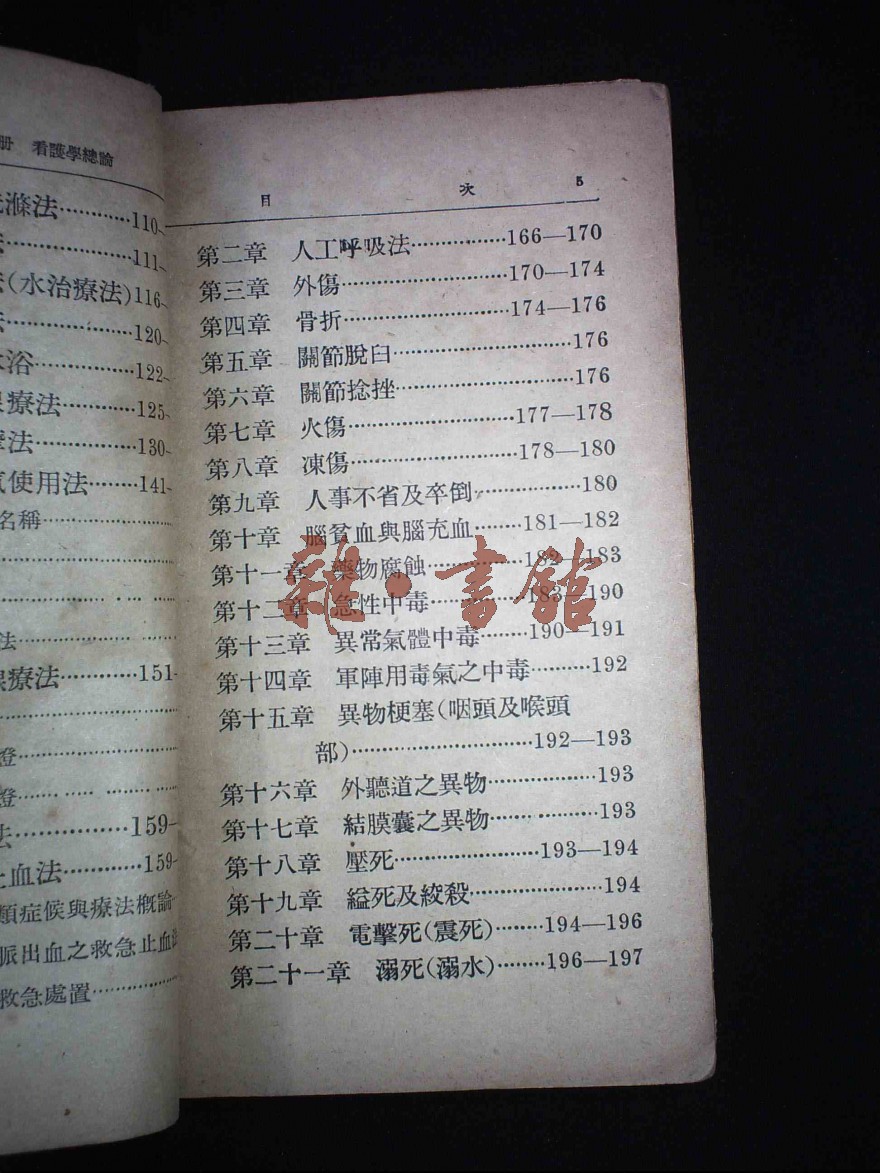 冊 看護學總論
滌法…………110
111
(水治療法)116
120
浴……………122
療法…………125
法……………130
使用法………141
名稱
法
療法…………151
證
證
法……………159
止血法………159
類症候與療法概論
脈出血之救急止血法
救急處置
目 次 5
第二章 人工呼吸法……………166—170
第三章 外傷……………………170—174
第四章 骨折……………………174—176
第五章 關節脫臼………………………176
第六章 關節捻挫………………………176
第七章 火傷……………………177—178
第八章 凍傷……………………178—180
第九章 人事不省及卒倒………………180
第十章 腦貧血與腦充血………181—182
第十一章 藥物腐蝕……………182—183
第十二章 急性中毒……………183—190
第十三章 異常氣體中毒………190—191
第十四章 軍陣用毒氣之中毒…………192
第十五章 異物梗塞(咽頭及喉頭
部)………………………192—193
第十六章 外聽道之異物………………193
第十七章 結膜囊之異物………………193
第十八章 壓死…………………193—194
第十九章 縊死及絞殺…………………194
第二十章 電擊死(震死)………194—196
第二十一章 溺死(溺水)………196—197
雜·書館